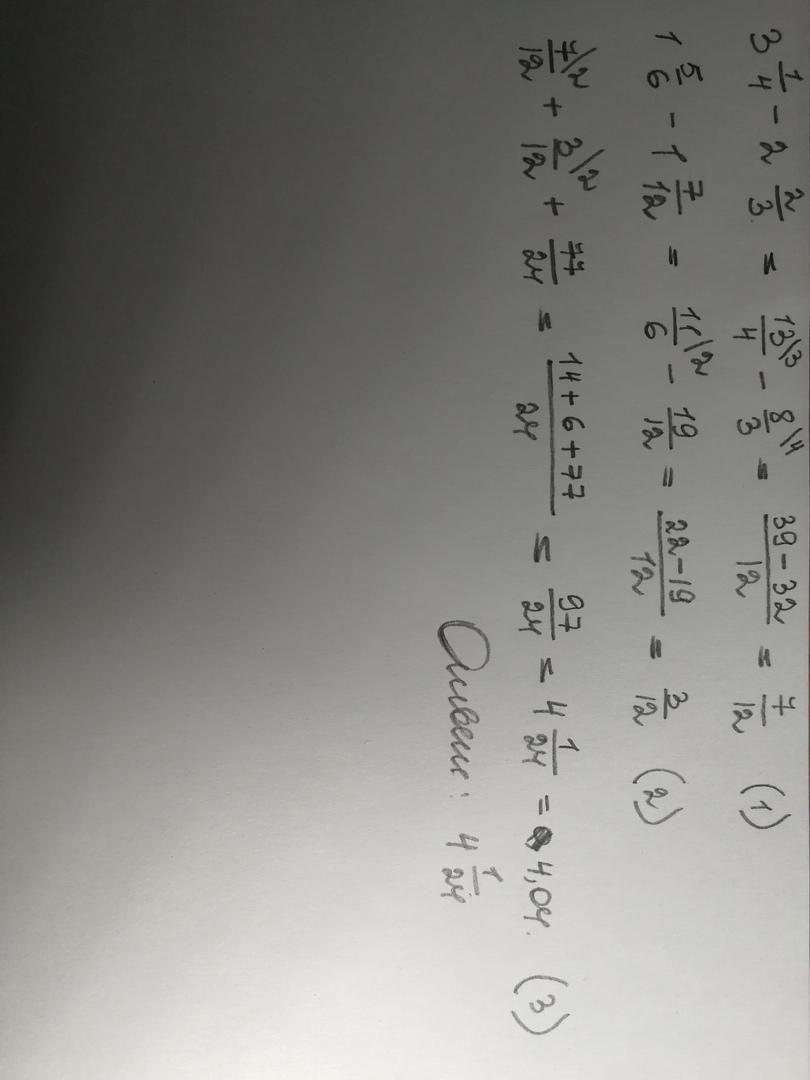 3 1/4 - 2 2/3 = 13\3/4 - 8\4/3 = 39-32/12 = 7/12 (1)
1 5/6 - 1 7/12 = 11\2/6 - 19/12 = 22-19/12 = 3/12 (2)
7\2/12 + 3\2/12 + 77/24 = 14+6+77/24 = 97/24 = 4 1/24 = 4,04. (3)
Ответ: 4 1/24